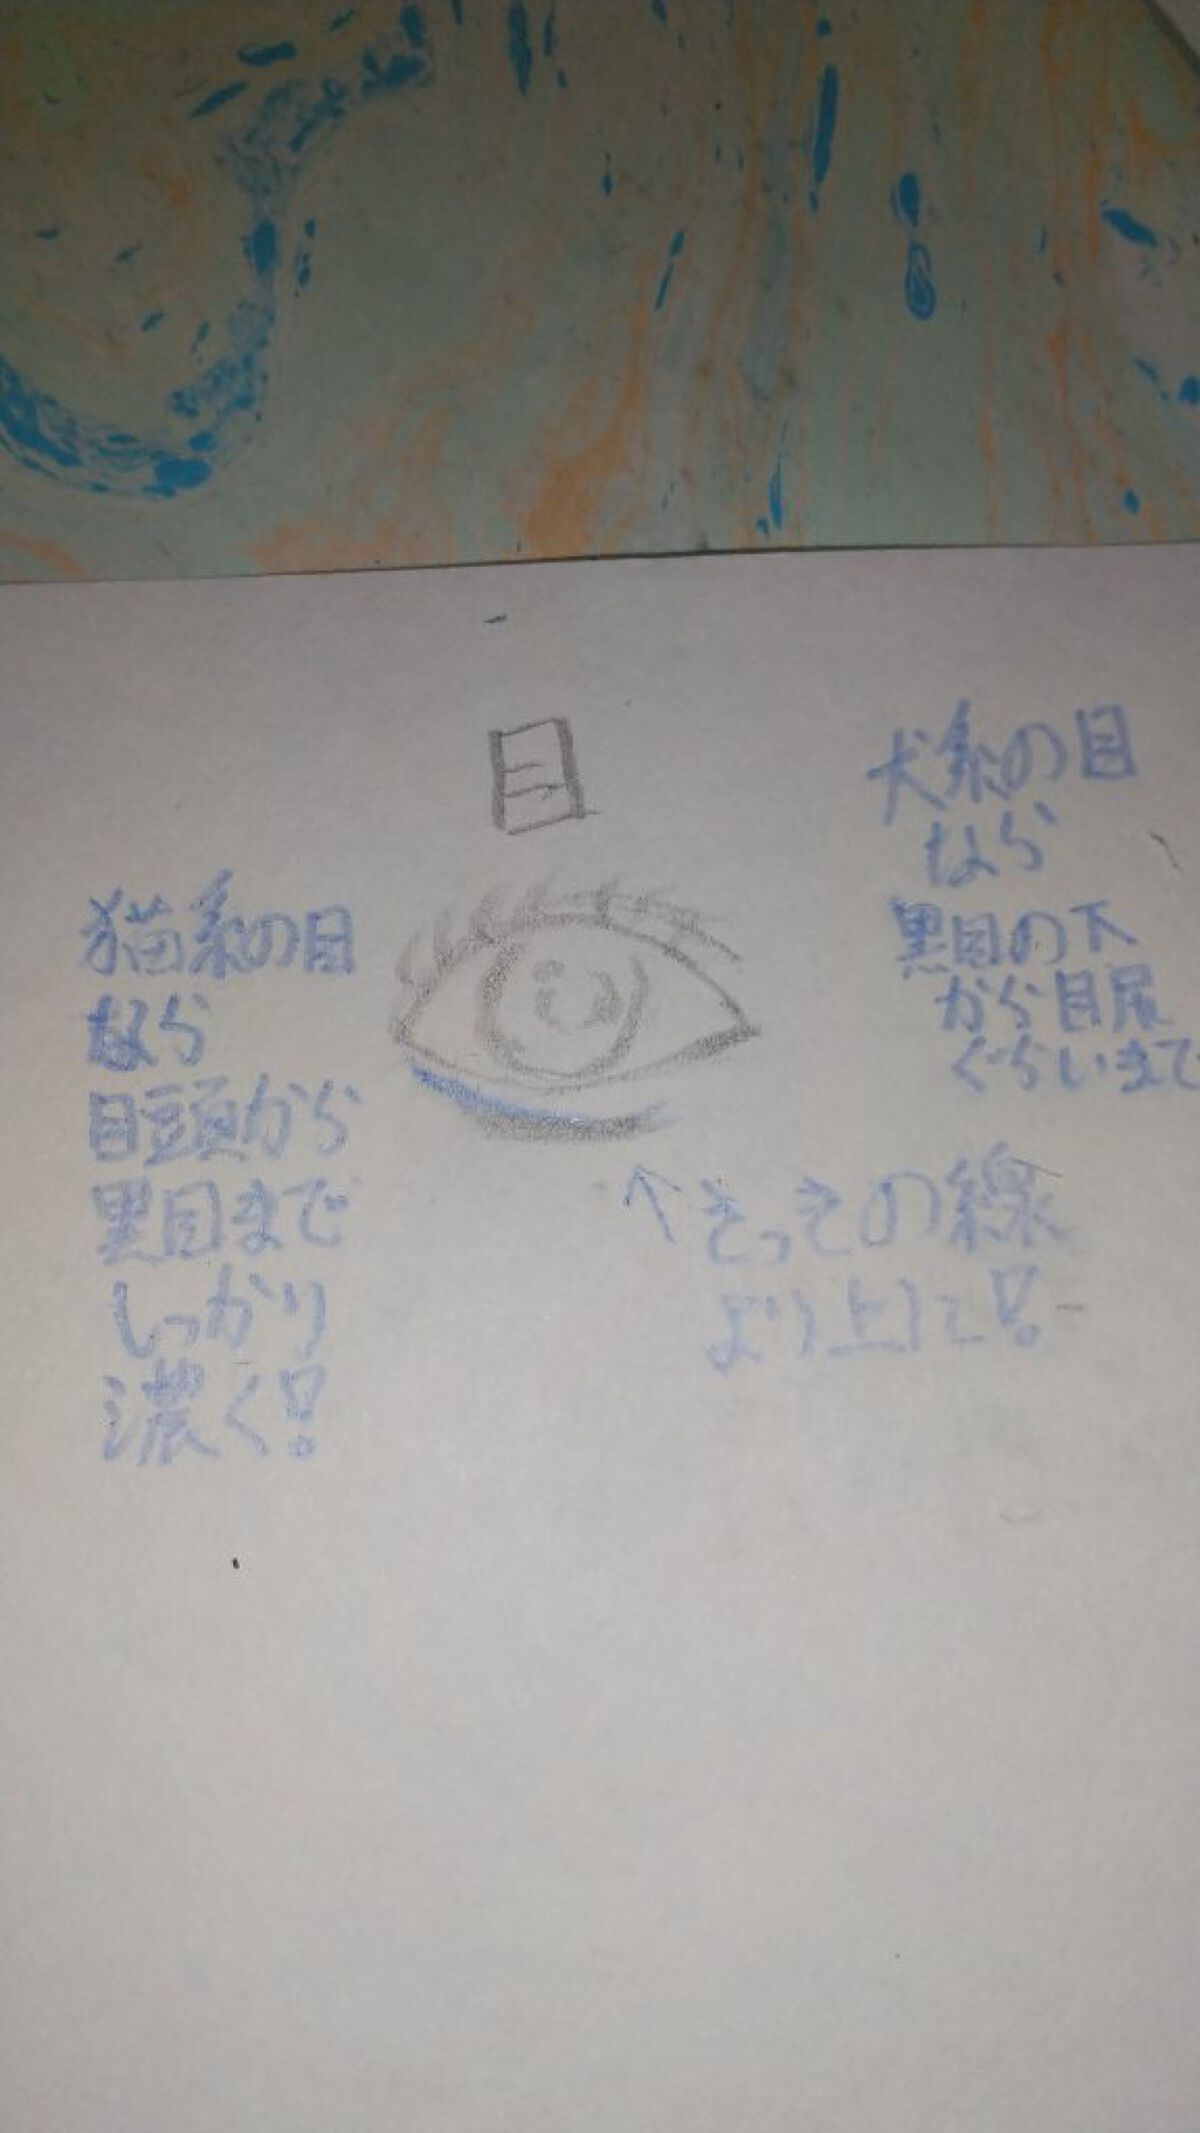 目
猫系の目
なら
目頭から
黒目まで
しっかり
濃く!
犬系の目
なら
黒目の下
から目尻
ぐらいまで
↑さっきの線
より上に!